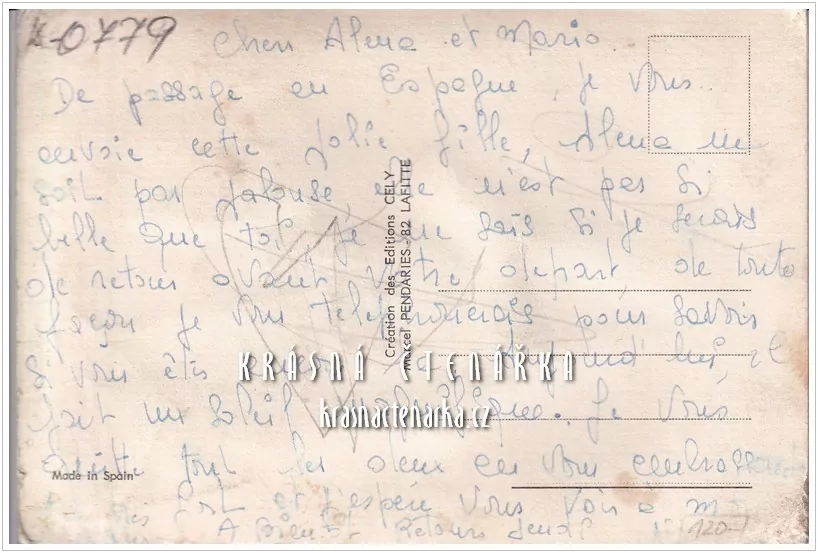 K-0779
Chers Alma et Mario..
De passage en Espagne, je vous..
envoie cette jolie fille, Alma ne
soit pas jalouse, elle n'est pas si
belle que toi, je ne sais si je serais
de retour avant votre depart, de toute
façon je vous telephonerais pour savoir
si vous êtes Aujourd'hui, il
fait un soleil magnifique. Je vous
tout les deux en vous embrassant
fort et j'espère vous voir
A Bientôt Retour
Création des Editions CELY
Marcel PENDARIES - 82 LAFITTE
KRÁSNÁ ČTENÁŘKA
krasnactenarka.cz
Made in Spain
120.-